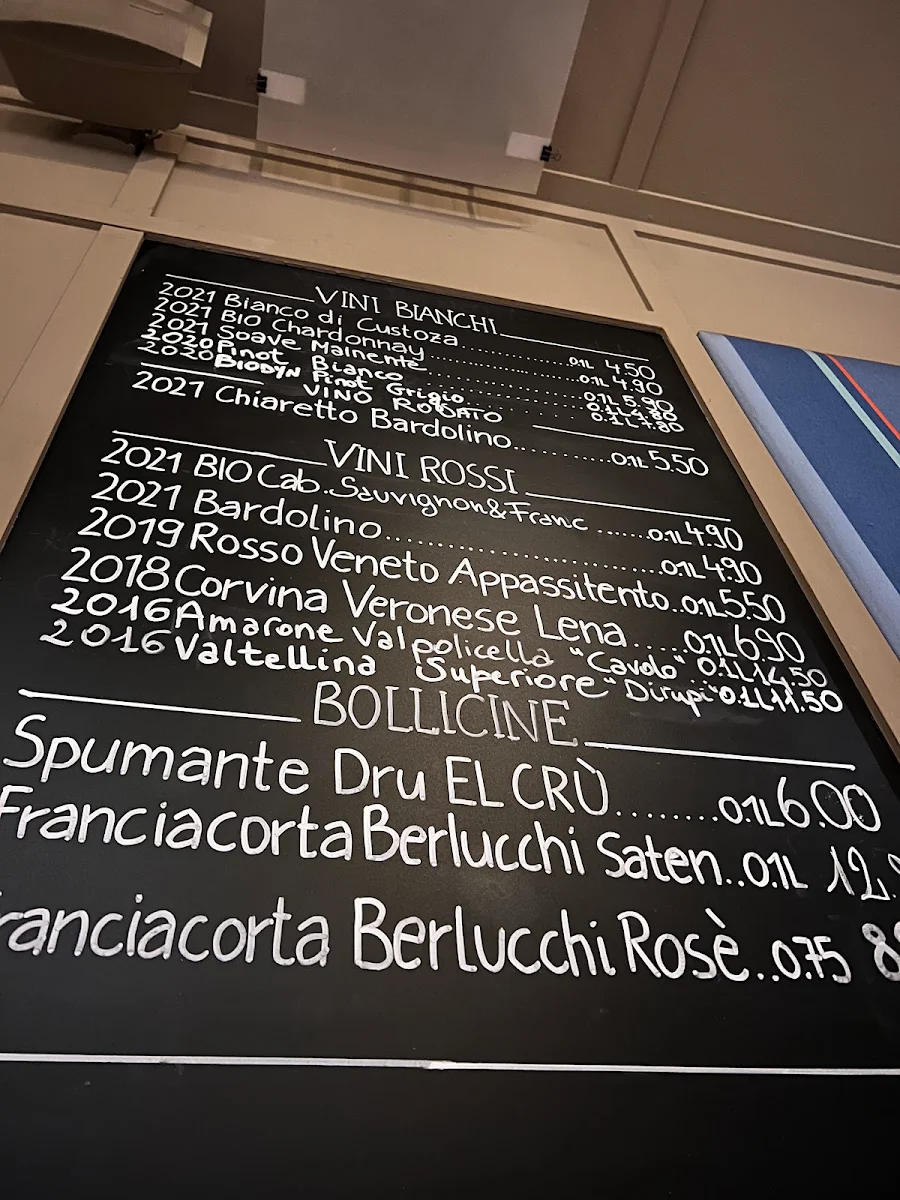 VINI BIANCHI
2021 Bianco di Custoza 0.1L 4.50
2021 BIO Chardonnay 0.1L 4.90
2021 Soave Mainente 0.1L 5.90
2020 Pinot Bianco 0.1L 4.80
2020 BIODYN Pinot Grigio 0.1L 4.80
VINO ROSATO
2021 Chiaretto Bardolino 0.1L 5.50
VINI ROSSI
2021 BIO Cab. Sauvignon & Franc 0.1L 4.90
2021 Bardolino 0.1L 4.90
2019 Rosso Veneto Appassitento 0.1L 5.50
2018 Corvina Veronese Lena 0.1L 6.90
2016 Amarone Valpolicella "Cavolo" 0.1L 14.50
2016 Valtellina Superiore "Dirupi" 0.1L 11.50
BOLLICINE
Spumante Dru EL CRÙ 0.1L 6.00
Franciacorta Berlucchi Saten 0.1L 12.
ranciacorta Berlucchi Rosè 0.75 8